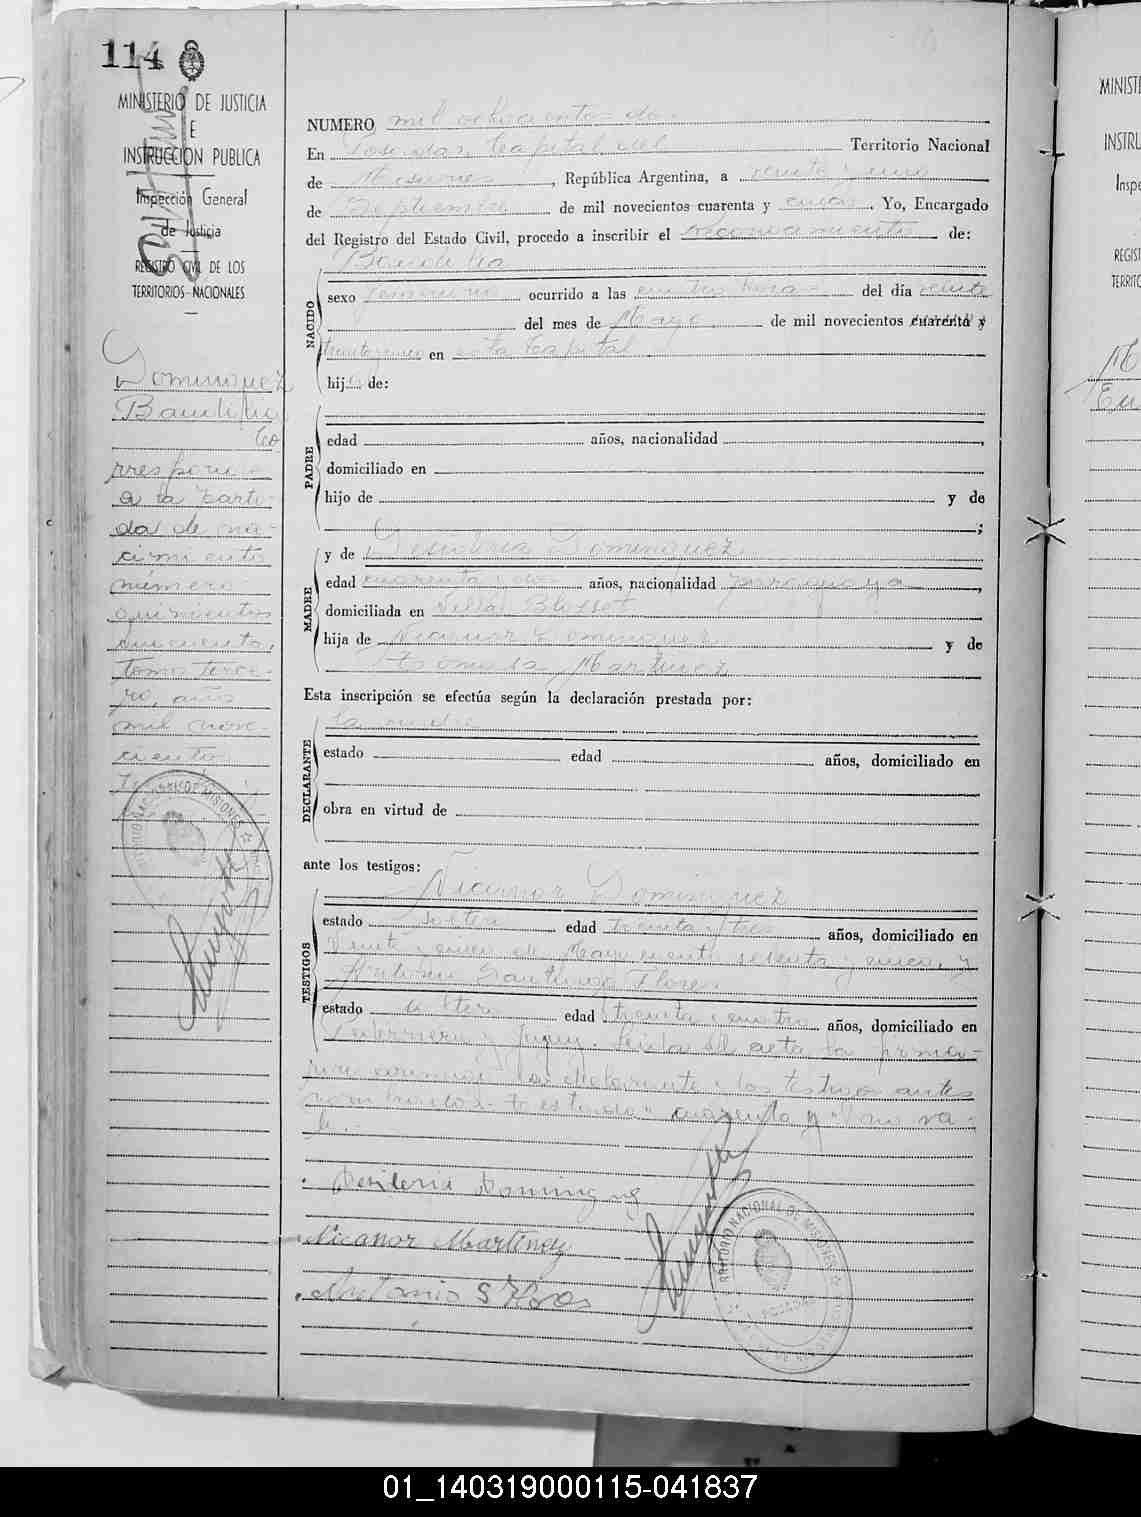 114
MINISTERIO DE JUSTICIA
E
INSTRUCCION PUBLICA
Inspección General
de Justicia
REGISTRO CIVIL DE LOS
TERRITORIOS NACIONALES
Dominguez
Baudilia
Co
rresponde
a la parti-
da de na-
cimiento
número
quinientos
cincuenta,
tomo terce-
ro, año
mil nove-
cientos
NUMERO mil ochocientos dos
En Posadas, Capital del Territorio Nacional
de Misiones, República Argentina, a veinte y uno
de Septiembre de mil novecientos cuarenta y cinco. Yo, Encargado
del Registro del Estado Civil, procedo a inscribir el reconocimiento de:
Baudilia
NACIDO
sexo femenino ocurrido a las cuatro horas del día veinte
del mes de Mayo de mil novecientos cuarenta y
treinta y uno en esta Capital
hija de:
PADRE
edad años, nacionalidad
domiciliado en
hijo de y de
;
MADRE
y de Desideria Dominguez
edad cuarenta y dos años, nacionalidad paraguaya,
domiciliada en Villa Blosset
hija de Nicanor Dominguez y de
Martinez
Esta inscripción se efectúa según la declaración prestada por:
DECLARANTE
la madre
estado edad años, domiciliado en
obra en virtud de
ante los testigos:
TESTIGOS
Nicanor Dominguez
estado soltero edad treinta y tres años, domiciliado en
Veinte y cinco de Mayo veinte setenta y cinco, y
Antonio Santiago Flores
estado soltero edad treinta y cuatro años, domiciliado en
y Jujuy. Leida el acta la firma-
ron conmigo la declarante y los testigos antes
nombrados- Testado "cuarenta y" no va-
le.-
Desideria Dominguez
Nicanor Martinez
Antonio S Flores
TERRITORIO NACIONAL DE MISIONES
MINIST
INSTRU
Inspe
REGIST
TERRITO
01_140319000115-041837